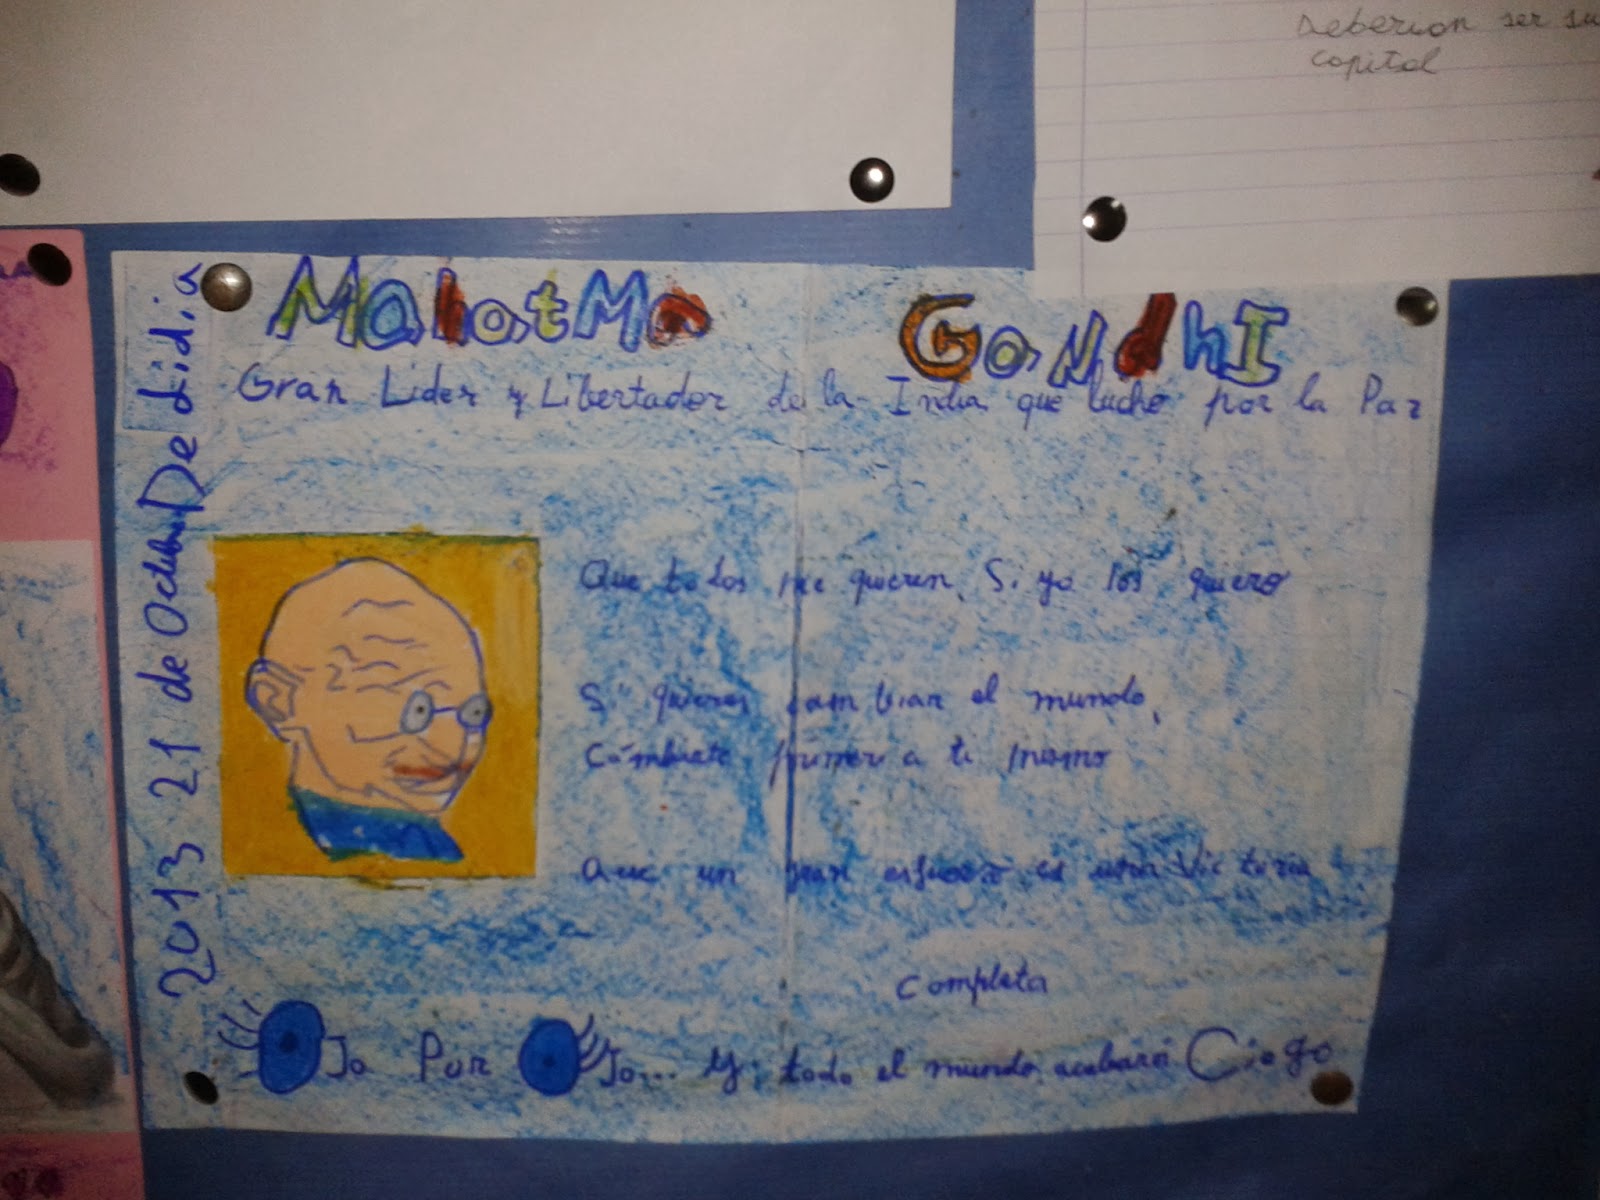 Deberian ser su
capital
Mahatma Gandhi
Gran Lider y Libertador de la India que luchó por la Paz
Que todos me quieren, Si yo los quiero
Si quieres cambiar el mundo,
Cámbiate primero a ti mismo
Que un gran esfuerzo es una Victoria
Completa
Ojo Por Ojo... y todo el mundo acabará Ciego
2013 21 de Octubre De Lidia